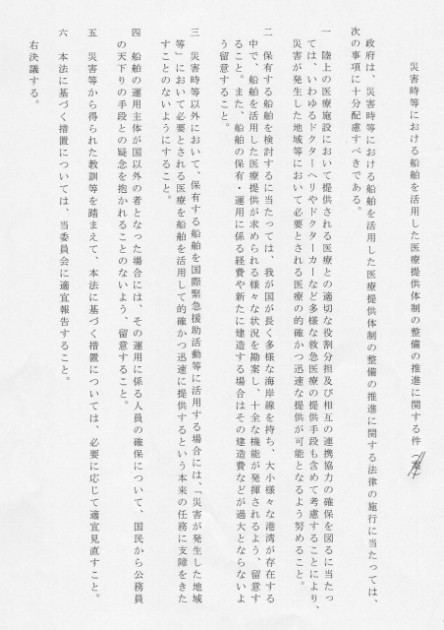 災害時等における船舶を活用した医療提供体制の整備の推進に関する件
政府は、災害時等における船舶を活用した医療提供体制の整備の推進に関する法律の施行に当たっては、
次の事項に十分配慮すべきである。
一 陸上の医療施設において提供される医療との適切な役割分担及び相互の連携協力の確保を図るに当たっ
ては、いわゆるドクターヘリやドクターカーなど多様な救急医療の提供手段も含めて考慮することにより、
災害が発生した地域等において必要とされる医療の的確かつ迅速な提供が可能となるよう努めること。
二 保有する船舶を検討するに当たっては、我が国が長く多様な海岸線を持ち、大小様々な港湾が存在する
中で、船舶を活用した医療提供が求められる様々な状況を勘案し、十全な機能が発揮されるよう、留意す
ること。また、船舶の保有・運用に係る経費や新たに建造する場合はその建造費などが過大とならないよ
う留意すること。
三 災害時等以外において、保有する船舶を国際緊急援助活動等に活用する場合には、「災害が発生した地域
等」において必要とされる医療を船舶を活用して的確かつ迅速に提供するという本来の任務に支障をきた
すことのないようにすること。
四 船舶の運用主体が国以外の者となった場合には、その運用に係る人員の確保について、国民から公務員
の天下りの手段との疑念を抱かれることのないよう、留意すること。
五 災害等から得られた教訓等を踏まえて、本法に基づく措置については、必要に応じて適宜見直すこと。
六 本法に基づく措置については、当委員会に適宜報告すること。
右決議する。